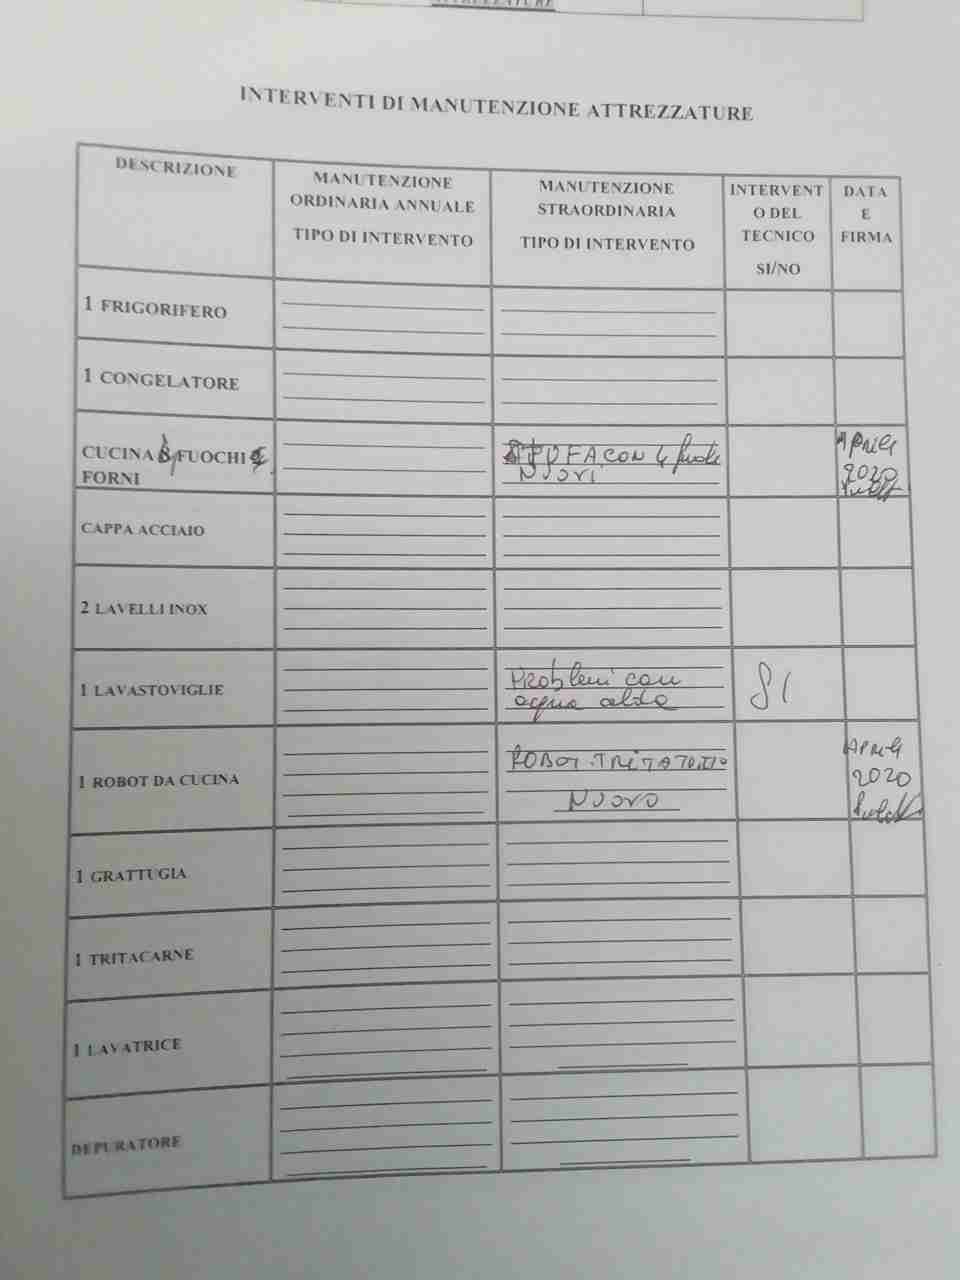 ATTREZZATURE
INTERVENTI DI MANUTENZIONE ATTREZZATURE
DESCRIZIONE
MANUTENZIONE
ORDINARIA ANNUALE
TIPO DI INTERVENTO
MANUTENZIONE
STRAORDINARIA
TIPO DI INTERVENTO
INTERVENT
O DEL
TECNICO
SI/NO
DATA
E
FIRMA
1 FRIGORIFERO
1 CONGELATORE
CUCINA FUOCHI
FORNI
STUFA CON 4 fuochi
NUOVI
APRILE
2020
CAPPA ACCIAIO
2 LAVELLI INOX
1 LAVASTOVIGLIE
Problemi con
acqua calda
SI
1 ROBOT DA CUCINA
ROBOT TRITATUTTO
NUOVO
APRILE
2020
1 GRATTUGIA
1 TRITACARNE
1 LAVATRICE
DEPURATORE